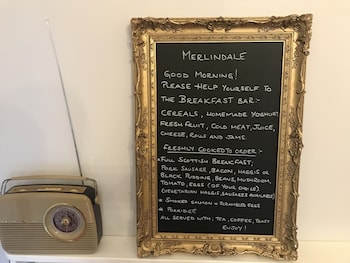 MERLINDALE
GOOD MORNING!
PLEASE HELP YOURSELF TO
THE BREAKFAST BAR:-
CEREALS, HOMEMADE YOGHURT
FRESH FRUIT, COLD MEAT, JUICE,
CHEESE, ROLLS AND JAMS.
FRESHLY COOKED TO ORDER:-
* FULL SCOTTISH BREAKFAST,
PORK SAUSAGE, BACON, HAGGIS OR
BLACK PUDDING, BEANS, MUSHROOM,
TOMATO, EGGS (OF YOUR CHOICE)
(VEGETARIAN HAGGIS, SAUSAGES AVAILABLE)
* SMOKED SALMON & SCRAMBLED EGGS
* PORRIDGE
ALL SERVED WITH, TEA, COFFEE, TOAST
ENJOY!